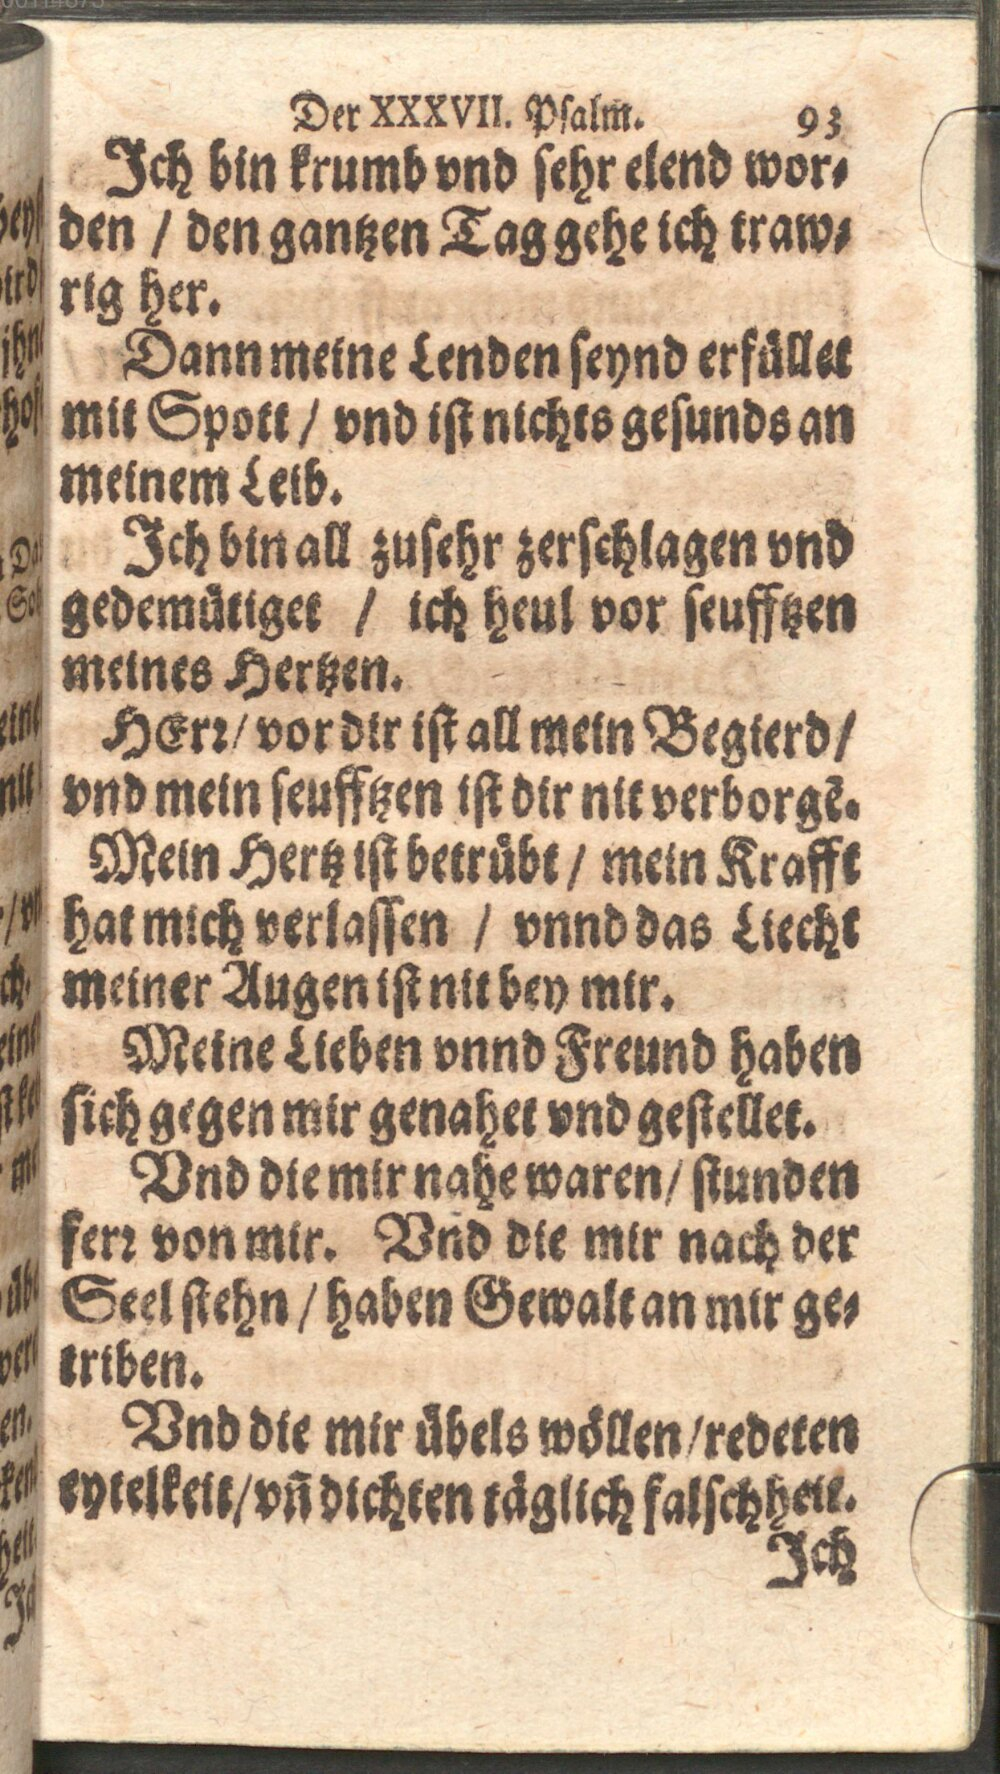 Der XXXVII. Psalm. 93
Ich bin krumb vnd sehr elend wor⸗
den / den gantzen Tag gehe ich traw⸗
rig her.
Dann meine Lenden seynd erfüllet
mit Spott / vnd ist nichts gesunds an
meinem Leib.
Ich bin all zusehr zerschlagen vnd
gedemütiget / ich heul vor seufftzen
meines Hertzen.
HErr/ vor dir ist all mein Begierd/
vnd mein seufftzen ist dir nit verborgẽ.
Mein Hertz ist betrübt / mein Krafft
hat mich verlassen / vnnd das Liecht
meiner Augen ist nit bey mir.
Meine Lieben vnnd Freund haben
sich gegen mir genahet vnd gestellet.
Vnd die mir nahe waren/ stunden
ferr von mir. Vnd die mir nach der
Seel stehn / haben Gewalt an mir ge⸗
triben.
Vnd die mir übels wöllen/redeten
eytelkeit/vn̄ dichten täglich falschheit.
Ich